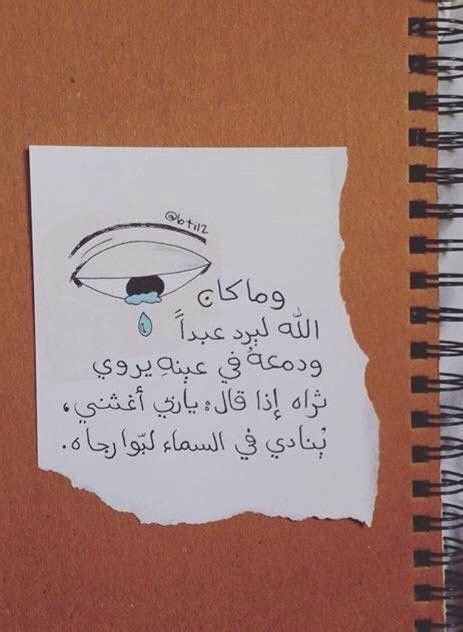 @bti12
وما كان
الله ليرد عبداً
ودمعهُ في عينهِ يروي
ثراه إذا قال: ياربّ أغثني،
يُنادي في السماء لبّوا رجاه.